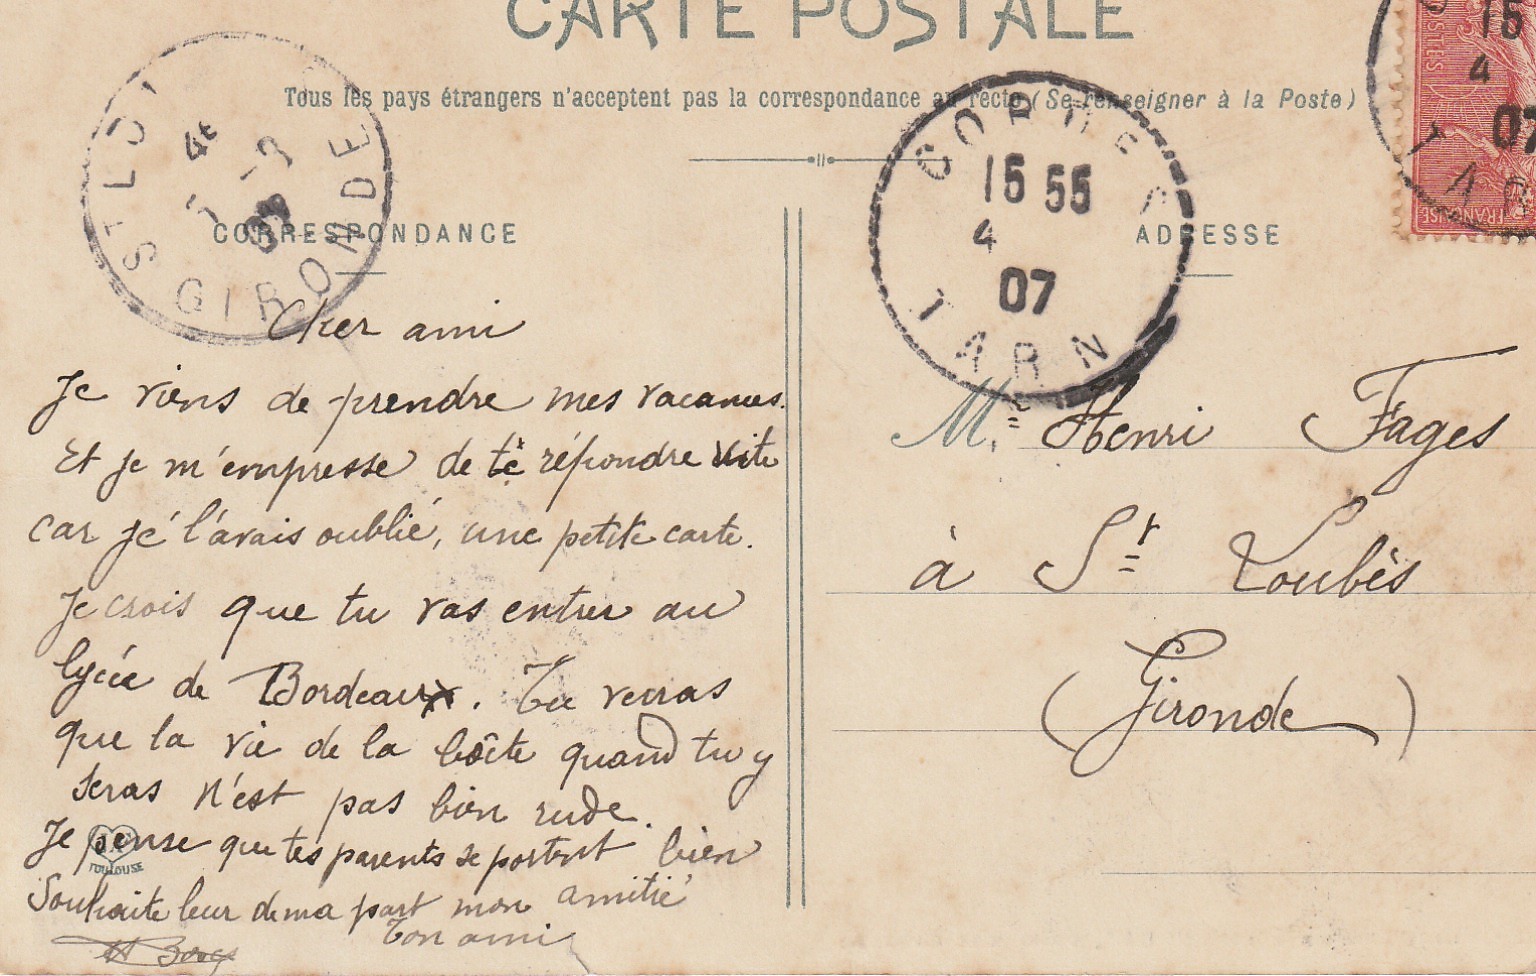 CARTE POSTALE
Tous les pays étrangers n'acceptent pas la correspondance au recto (Se renseigner à la Poste)
ST LO
GIRONDE
CORDES
15 55
4
07
TARN
15
4
07
TAR
POSTES
FRANÇAISE
CORRESPONDANCE
ADRESSE
Cher ami
Je viens de prendre mes vacances.
Et je m'empresse de te répondre vite
car je l'avais oublié, une petite carte.
Je crois que tu vas entrer au
lycée de Bordeaux. Tu verras
que la vie de la boîte quand tu y
seras n'est pas bien rude.
Je pense que tes parents se portent bien
Souhaite leur de ma part mon amitié
Ton ami
TOULOUSE
M.r Henri Fages
à St Loubès
(Gironde)